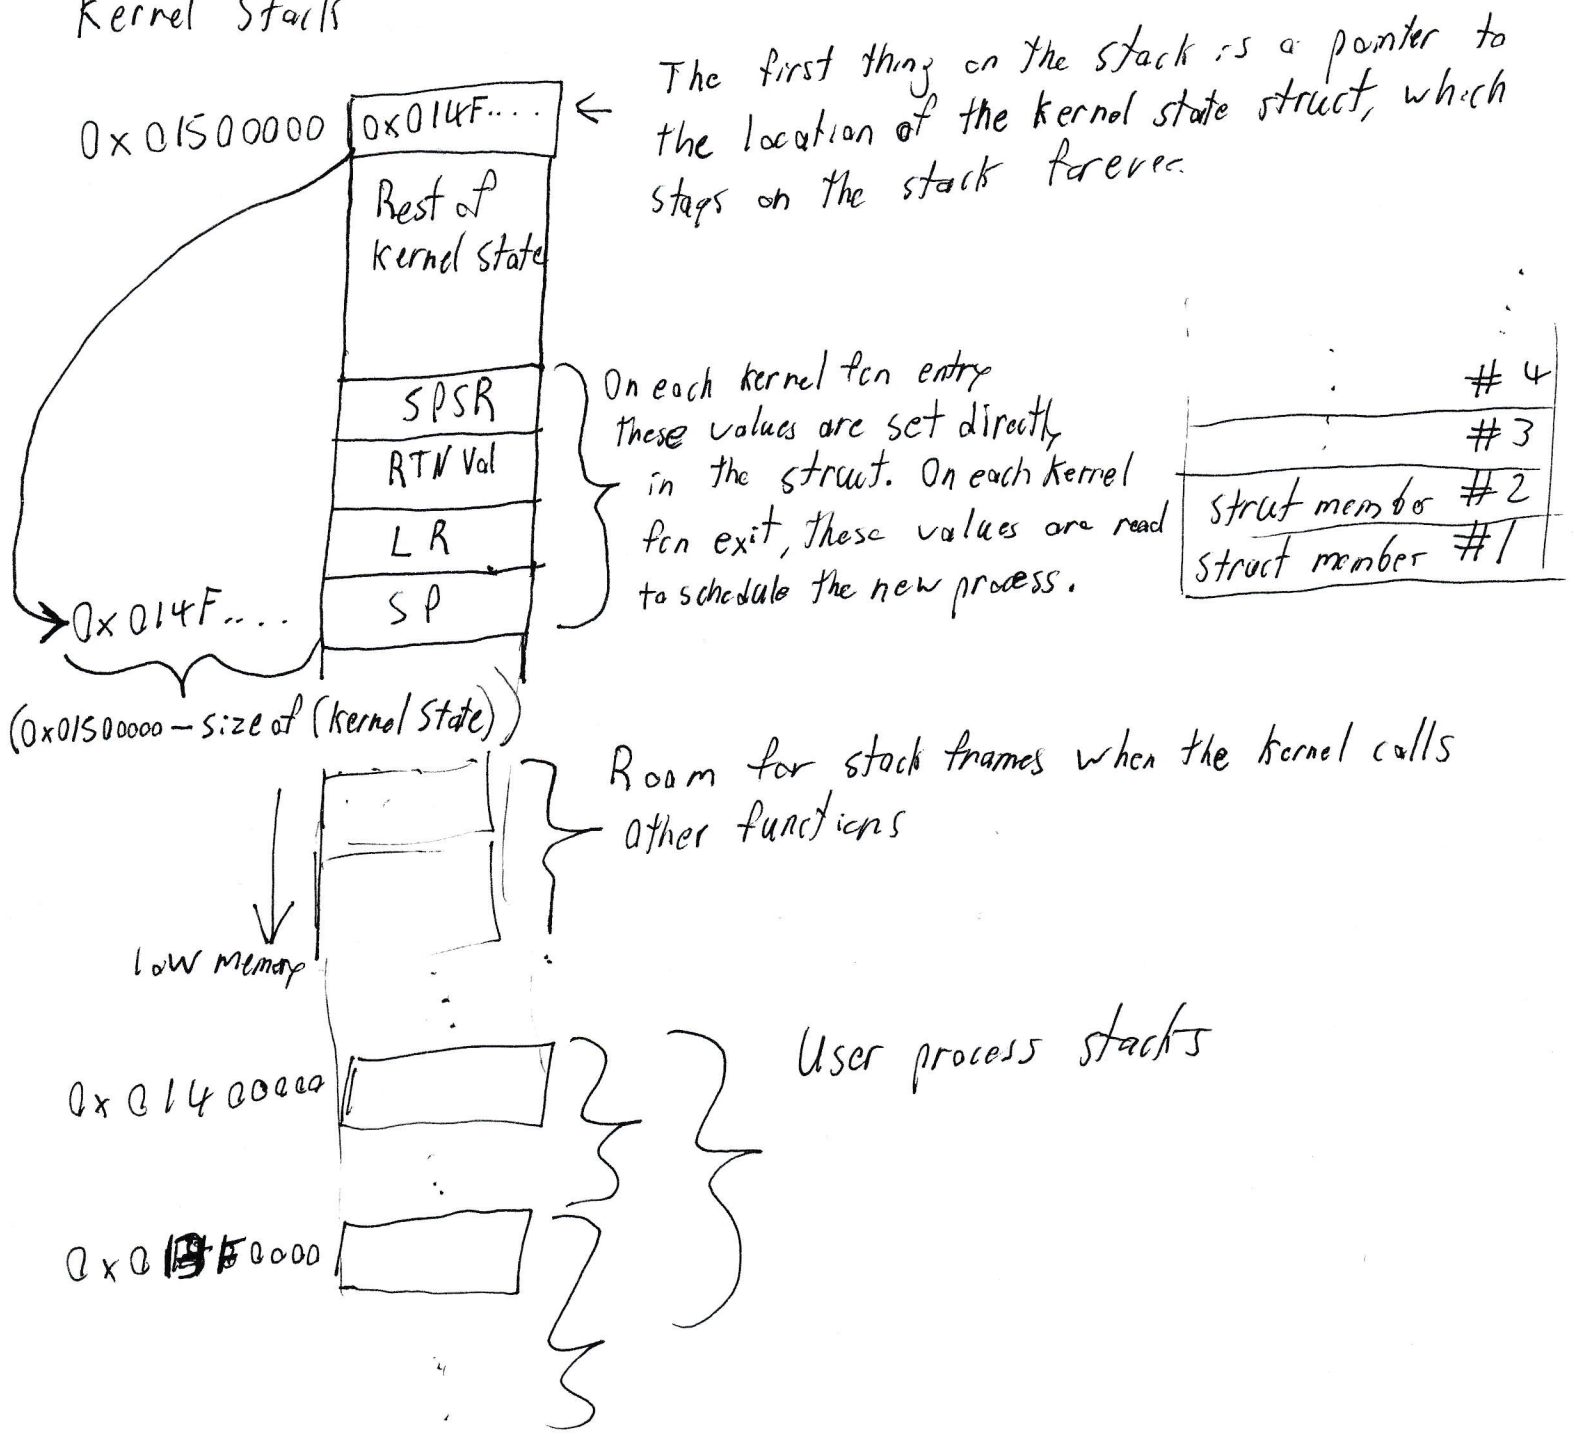 Kernel Stack
The first thing on the stack is a pointer to
the location of the kernel state struct, which
stays on the stack forever.
0x01500000
0x014F....
Rest of
Kernel State
SPSR
RTN Val
LR
SP
On each kernel fcn entry
these values are set directly
in the struct. On each kernel
fcn exit, these values are read
to schedule the new process.
# 4
# 3
struct member #2
struct member #1
0x014F....
(0x01500000 - size of (Kernel State))
Room for stack frames when the kernel calls
other functions
low memory
User process stacks
0x01400000